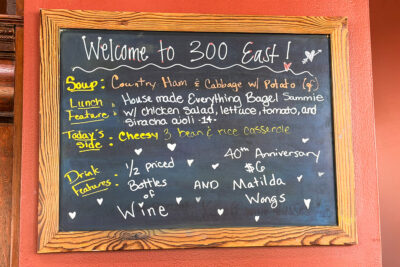 Welcome to 300 East!
Soup: Country Ham & Cabbage w/ Potato (gf)
Lunch Feature: House made Everything Bagel Sammie
w/ chicken salad, lettuce, tomato, and
siracha aioli - 14-
Today's Side: Cheesy 3 bean & rice casserole
Drink Features:
1/2 priced
Bottles
of
Wine
AND
40th Anniversary
$6
Matilda
Wongs